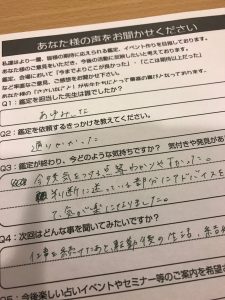 あなた様の声をお聞かせください
私達はより一層、皆様の期待に応えられる鑑定、イベント作りを目指しております。
あなた様のご意見をいただき、今後の活動に反映したいと考えております。
鑑定、会場において「今までよりここが良かった」・「ここは期待以上だった」
など率直なご意見、ご感想をお聞かせ下さい。
Q1：鑑定を担当した先生は誰でしたか？
あゆみ
Q2：鑑定を依頼するきっかけを教えてください。
通りがかった
Q3：鑑定が終わり、今どのような気持ちですか？ 気付きや発見があ
今の
判断に迷っている部分にアドバイスを
て、気が楽になりました。
Q4：次回はどんな事を聞いてみたいですか？
仕事を続けたあと、転勤後の生活、結婚
Q5：今後楽しい占いイベントやセミナー等のご案内を希望さ